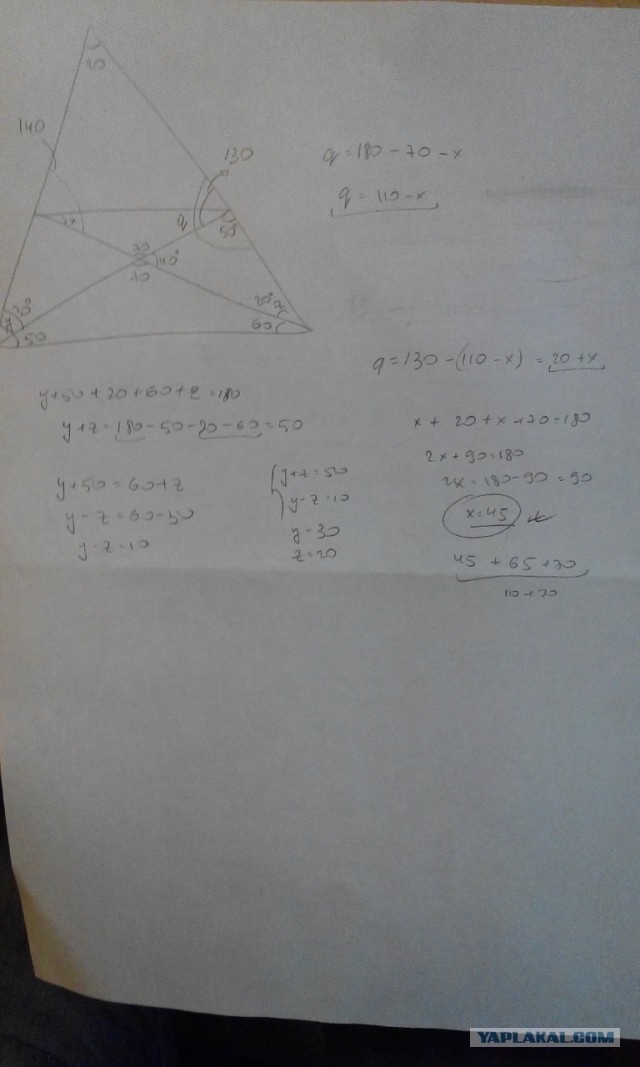 20
140
130
q = 180 - 70 - x
q = 110 - x
q
x
50
70
110°
70
20° z
60
30°
50
q = 130 - (110 - x) = 20 + x
y + 50 + 20 + 60 + z = 180
y + z = 180 - 50 - 20 - 60 = 50
x + 20 + x + 70 = 180
2x + 90 = 180
2x = 180 - 90 = 90
x = 45
y + 50 = 60 + z
y - z = 60 - 50
y - z = 10
y + z = 50
y - z = 10
y = 30
z = 20
45 + 65 + 70
110 + 70
YAPLAKAL.COM